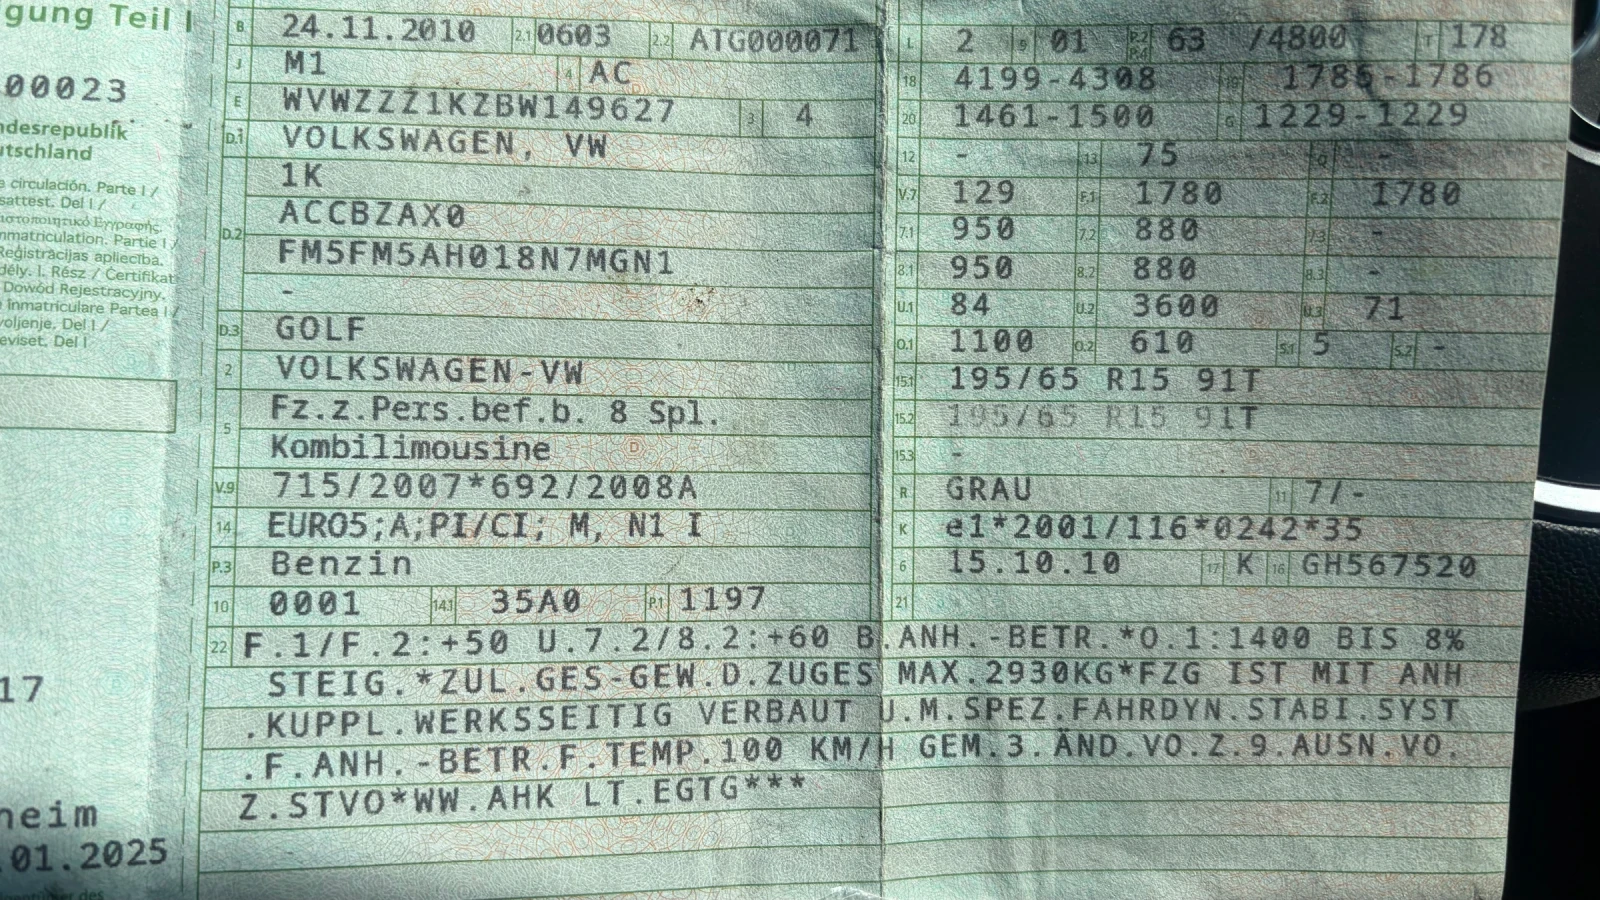 gung Teil I
00023
ndesrepublik
utschland
a circulación. Parte I /
sattest. Del I /
nmatriculation. Partie I /
Reģistrācijas apliecība.
dély. I. Rész / Čertifikat
Dowód Rejestracyjny.
înmatriculare Partea I /
voljenje. Del I /
eviset. Del I
17
heim
.01.2025
B 24.11.2010 2.1 0603 2.2 ATG000071
J M1 4 AC
E WVWZZZ1KZBW149627 3 4
D.1 VOLKSWAGEN, VW
1K
D.2 ACCBZAX0
FM5FM5AH018N7MGN1
-
D.3 GOLF
2 VOLKSWAGEN-VW
5 Fz.z.Pers.bef.b. 8 Spl.
Kombilimousine
V.9 715/2007*692/2008A
14 EURO5;A;PI/CI; M, N1 I
P.3 Benzin
10 0001 14.1 35A0 P.1 1197
L 2 9 01 P.2 P.4 63 /4800 T 178
18 4199-4308 19 1786-1786
20 1461-1500 G 1229-1229
12 - 13 75 Q -
V.7 129 F.1 1780 F.2 1780
7.1 950 7.2 880 7.3 -
8.1 950 8.2 880 8.3 -
U.1 84 U.2 3600 U.3 71
O.1 1100 O.2 610 S.1 5 S.2 -
15.1 195/65 R15 91T
15.2 195/65 R15 91T
15.3 -
R GRAU 11 7/-
K e1*2001/116*0242*35
6 15.10.10 17 K 16 GH567520
21
22 F.1/F.2:+50 U.7.2/8.2:+60 B.ANH.-BETR.*O.1:1400 BIS 8%
STEIG.*ZUL.GES-GEW.D.ZUGES MAX.2930KG*FZG IST MIT ANH
.KUPPL.WERKSSEITIG VERBAUT U.M.SPEZ.FAHRDYN.STABI.SYST
.F.ANH.-BETR.F.TEMP.100 KM/H GEM.3.ÄND.VO.Z.9.AUSN.VO.
Z.STVO*WW.AHK LT.EGTG***